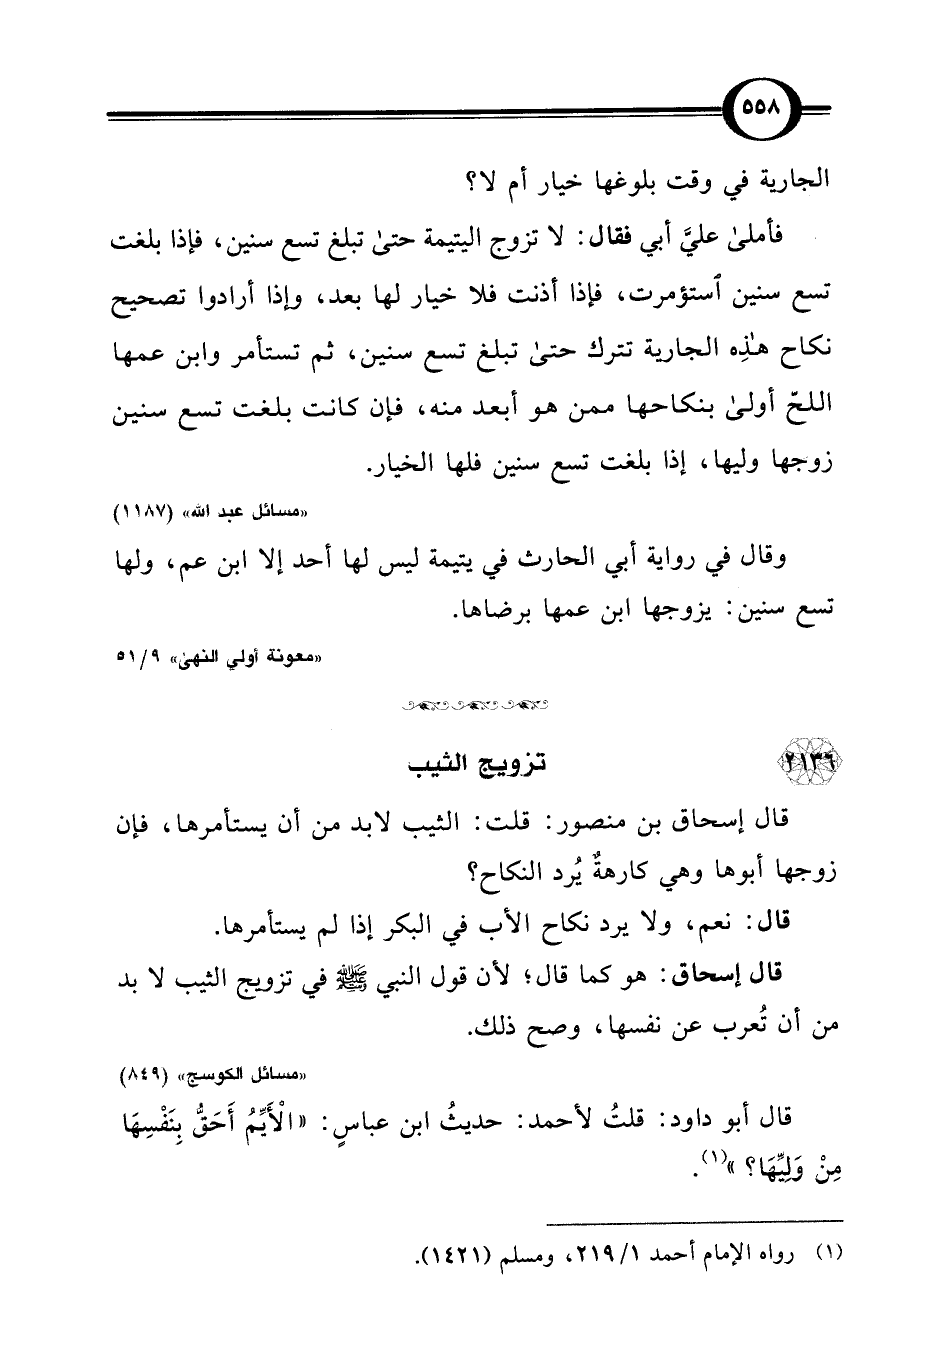 ٥٥٨
الجارية في وقت بلوغها خيار أم لا؟
فأملىٰ عليَّ أبي فقال: لا تزوج اليتيمة حتىٰ تبلغ تسع سنين، فإذا بلغت
تسع سنين ٱستؤمرت، فإذا أذنت فلا خيار لها بعد، وإذا أرادوا تصحيح
نكاح هٰذِه الجارية تترك حتىٰ تبلغ تسع سنين، ثم تستأمر وابن عمها
اللحّ أولىٰ بنكاحها ممن هو أبعد منه، فإن كانت بلغت تسع سنين
زوجها وليها، إذا بلغت تسع سنين فلها الخيار.
«مسائل عبد الله» (١١٨٧)
وقال في رواية أبي الحارث في يتيمة ليس لها أحد إلا ابن عم، ولها
تسع سنين: يزوجها ابن عمها برضاها.
«معونة أولي النهىٰ» ٩/٥١
٢١٣٦
تزويج الثيب
قال إسحاق بن منصور: قلت: الثيب لابد من أن يستأمرها، فإن
زوجها أبوها وهي كارهةٌ يُرد النكاح؟
قال: نعم، ولا يرد نكاح الأب في البكر إذا لم يستأمرها.
قال إسحاق: هو كما قال؛ لأن قول النبي ﷺ في تزويج الثيب لا بد
من أن تُعرب عن نفسها، وصح ذلك.
«مسائل الكوسج» (٨٤٩)
قال أبو داود: قلتُ لأحمد: حديثُ ابن عباسٍ: «الْأَيِّمُ أَحَقُّ بِنَفْسِهَا
مِنْ وَلِيِّهَا؟ »(١).
(١) رواه الإمام أحمد ١/٢١٩، ومسلم (١٤٢١).